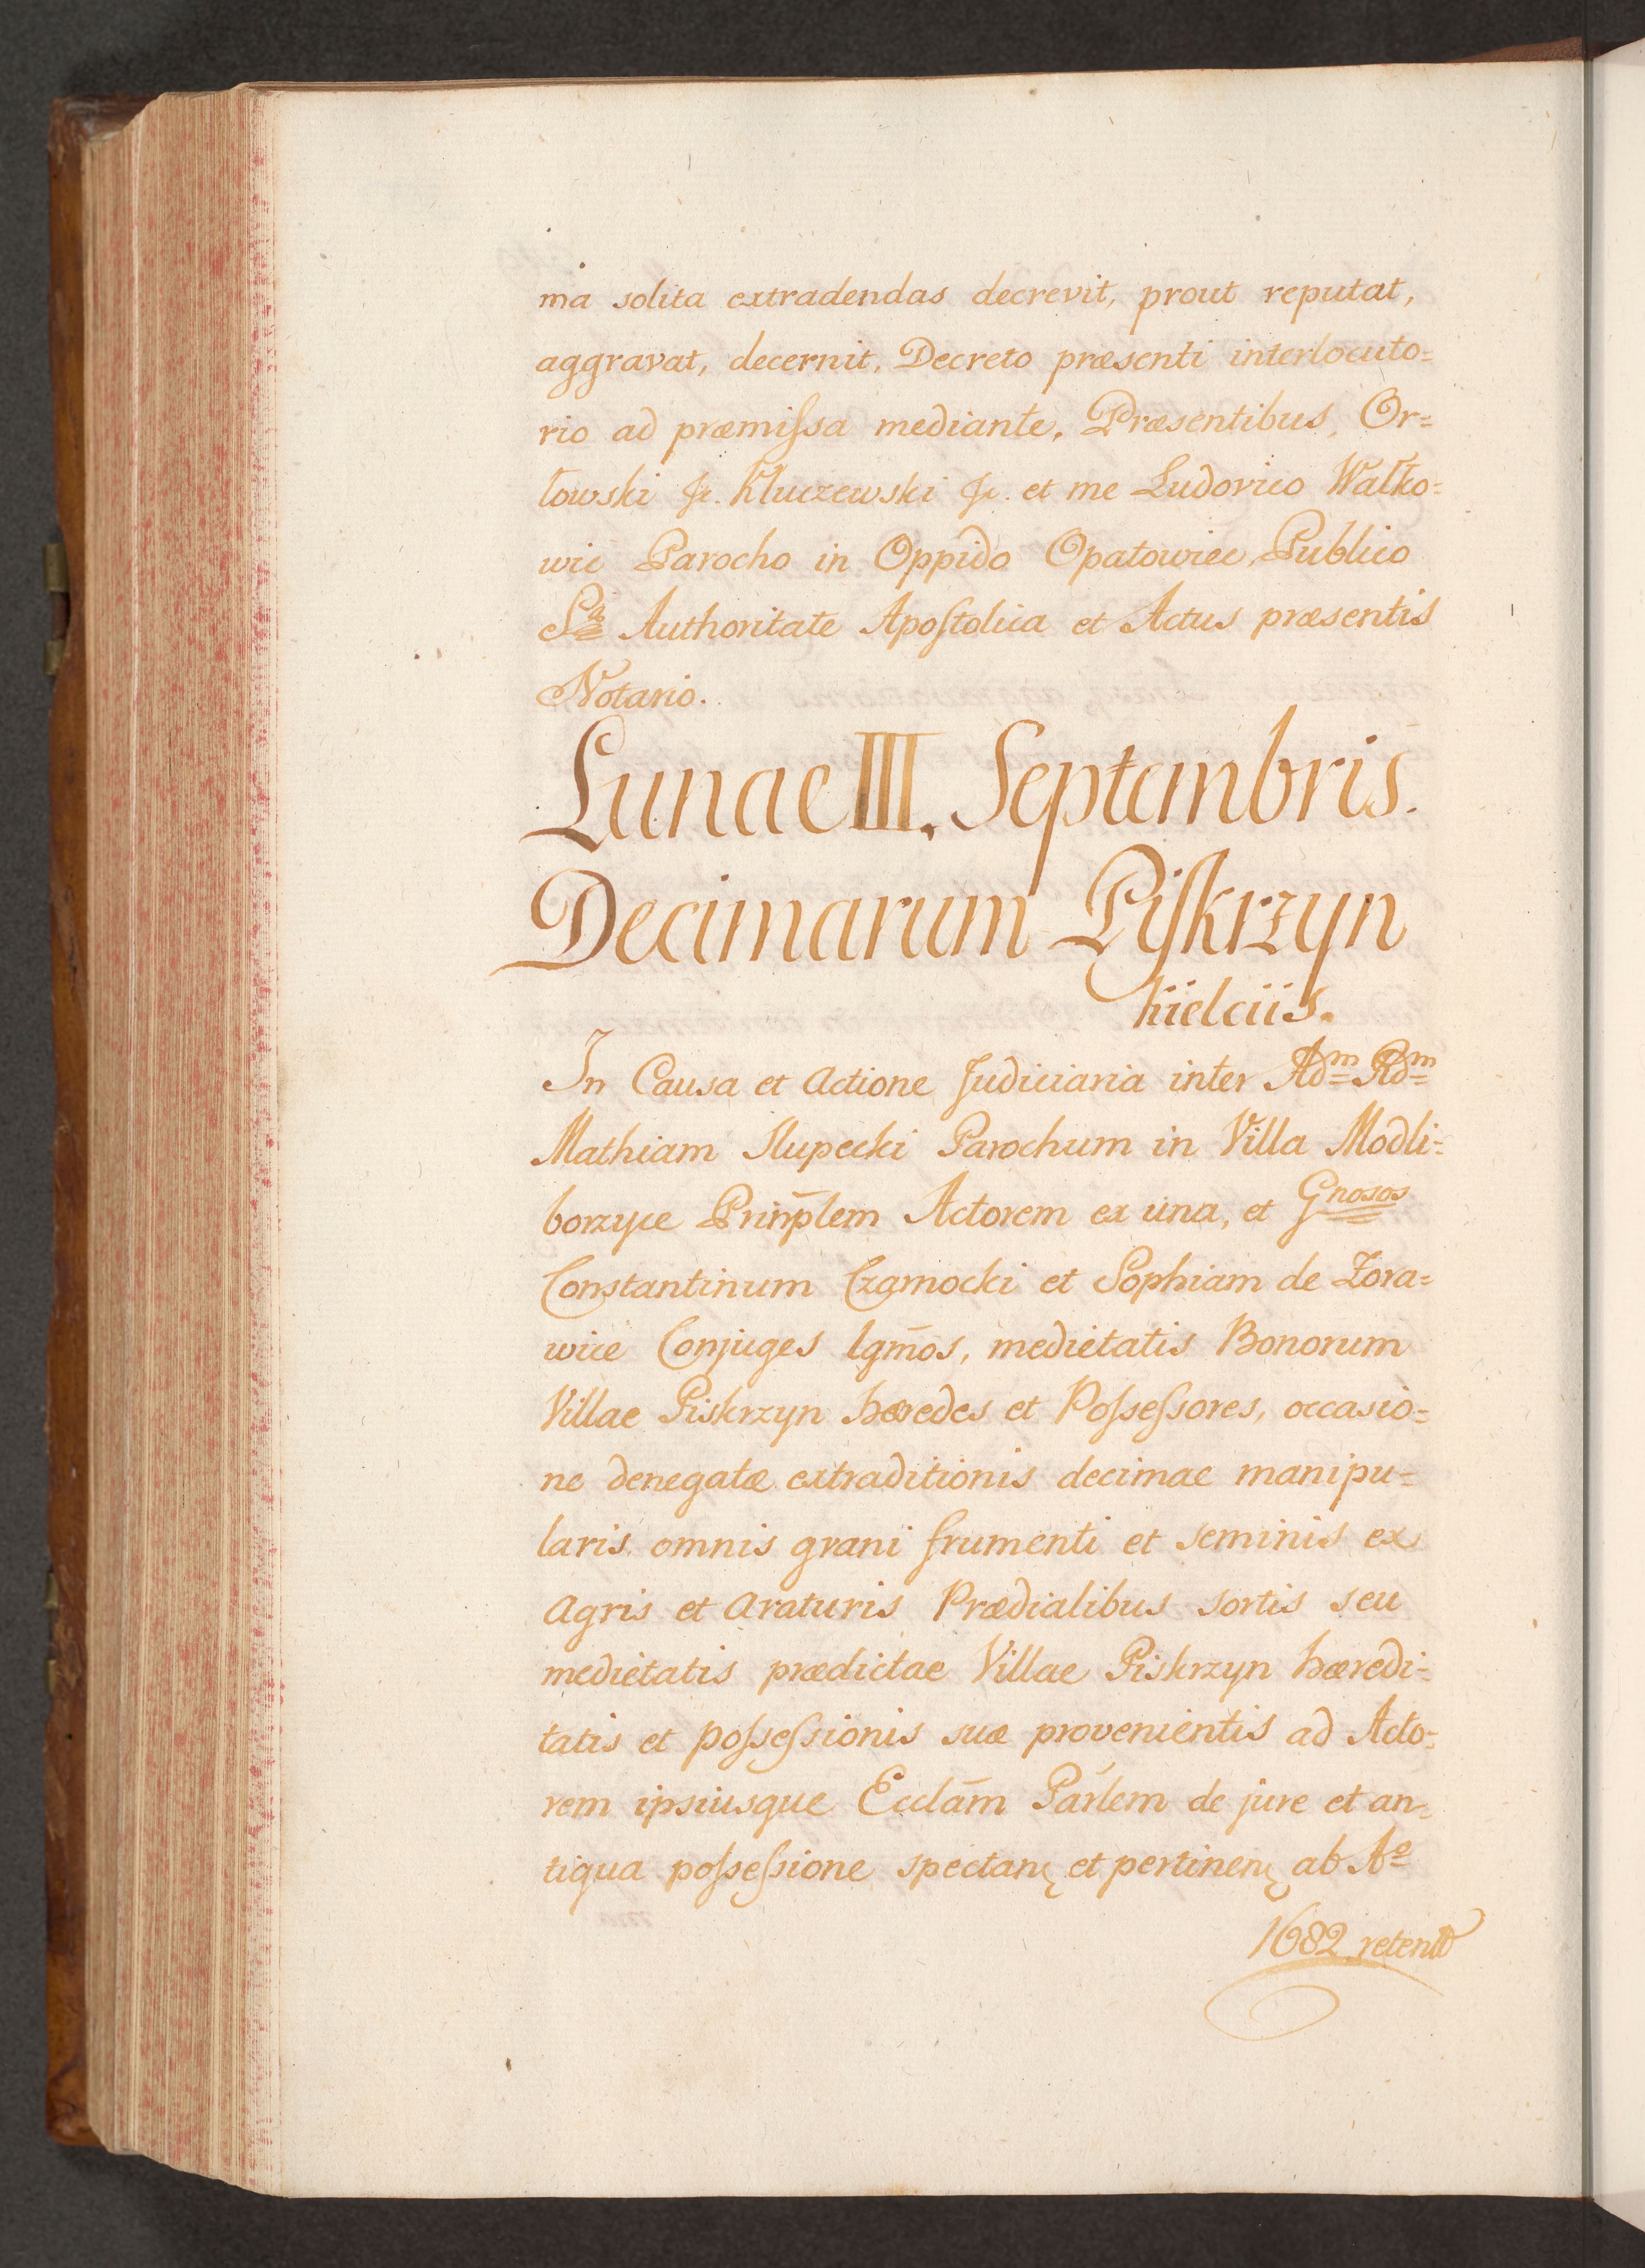 ma solita extradendas decrevit, prout reputat,
aggravat, decernit, Decreto præsenti interlocuto=
rio ad præmiſsa mediante. Præsentibus, Or=
łowski &c. Kluczewski &c. et me Ludovico Wałko=
wic Parocho in Oppido Opatowiec, Publico
Sa Authoritate Apoſtolica et Actus præsentis
Notario.
Lunae III. Septembris.
Decimarum Piſkrzyn
kielciis.
In Causa et Actione Judiciaria inter Adm Rdm
Mathiam Słupecki Parochum in Villa Modli=
borzyce Prinp̄lem Actorem ex una, et Gnosos
Constantinum Czarnocki et Sophiam de Zora=
wice Conjuges lgm̄os, medietatis Bonorum
Villae Piskrzyn hæredes et Poſseſsores, occasio=
ne denegatæ extraditionis decimae manipu=
laris omnis grani frumenti et seminis ex
Agris et Araturis Prædialibus sortis seu
medietatis prædictae Villae Piskrzyn hæredi=
tatis et poſseſsionis suæ provenientis ad Acto=
rem ipsiusque Ecclām Pārlem de jure et an=
tiqua poſseſsione spectanę et pertinenę ab Ao
1682 retent